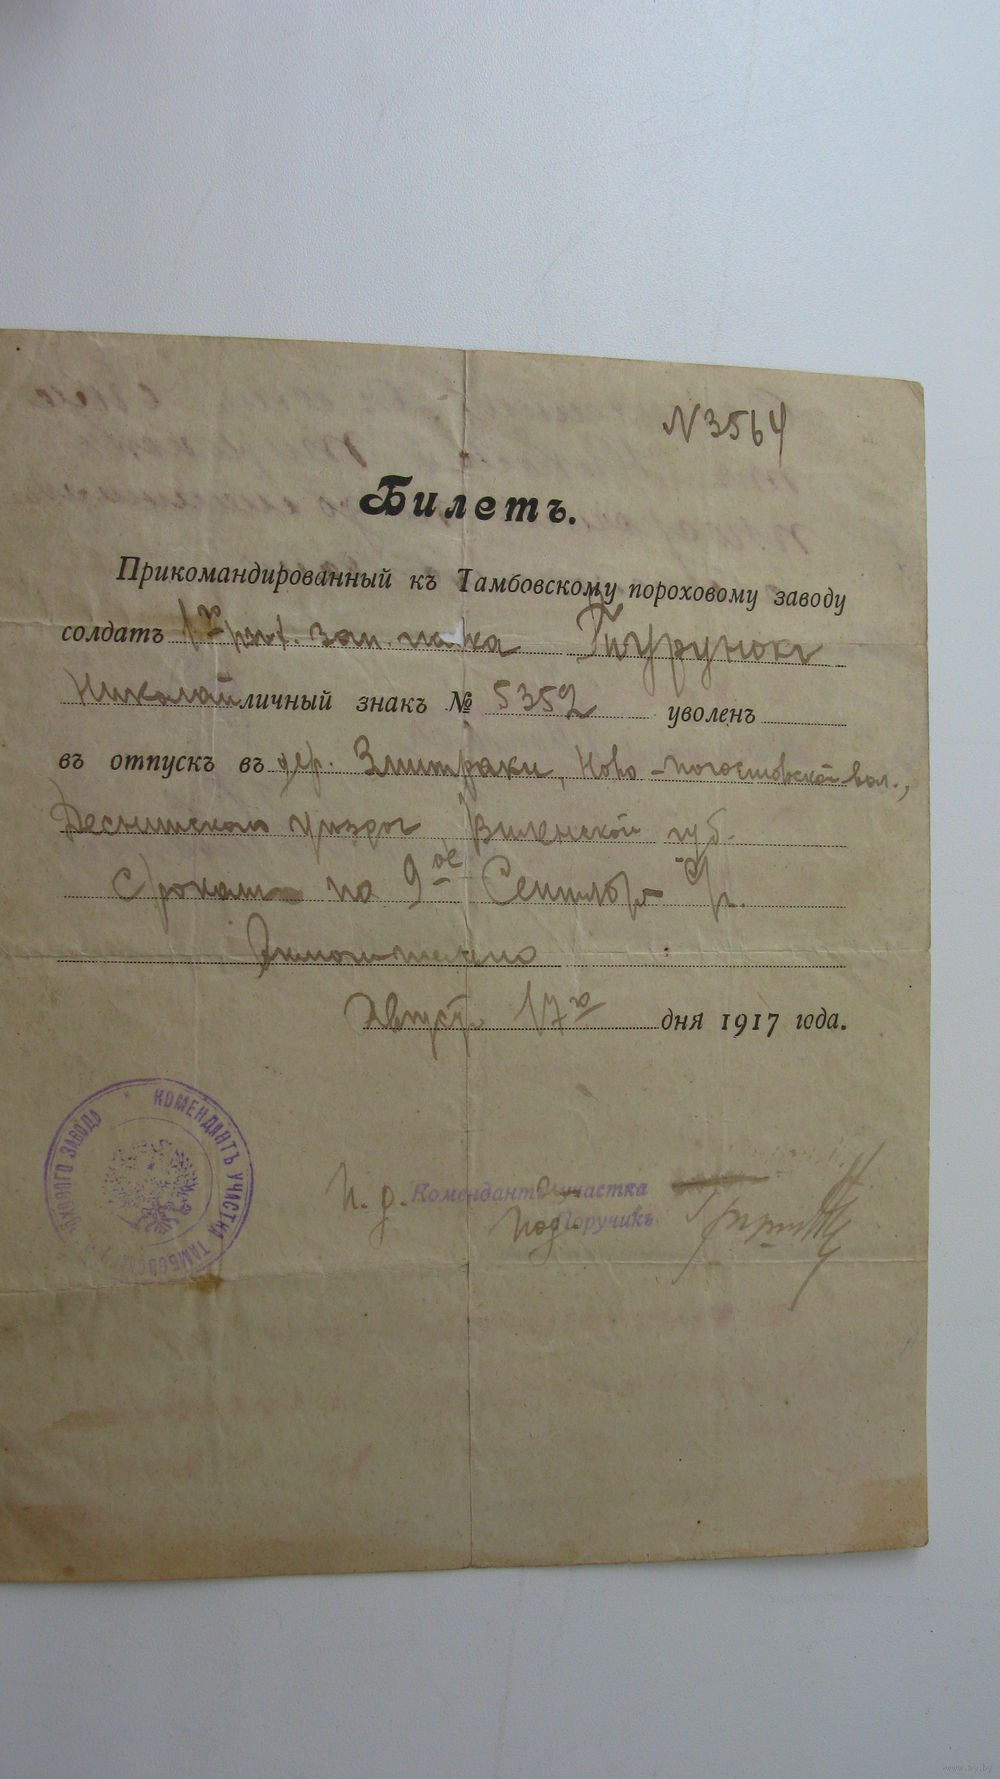 № 3564
Билетъ.
Прикомандированный къ Тамбовскому пороховому заводу
солдатъ 1го арт. зап. парка Турунокъ
Николай личный знакъ № 5352 уволенъ
въ отпускъ въ дер. Змитраки, Ново-Погостовской вол.,
уѣзда Виленской губ.
Срокомъ по 9ое Сентября с/г.
Включительно
Август 17го дня 1917 года.
КОМЕНДАНТЪ УЧАСТКА ТАМБОВСКАГО ПОРОХОВОГО ЗАВОДА
И. д. Комендантъ участка
Под Поручикъ